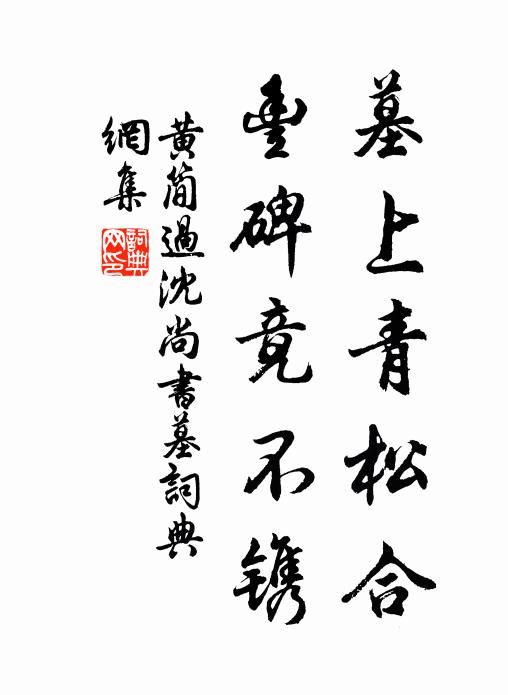 墓上青松合
豊碑竟不镌
黄简過沈尚書墓詞典
網集
詞典
网印